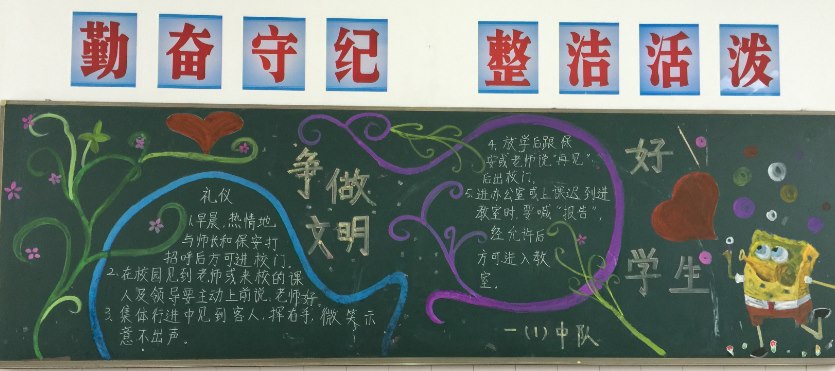 勤奋守纪
整洁活泼
争做
文明
好
学生
礼仪
1.早晨,热情地
与师长和保安打
招呼后方可进校门.
2.在校园见到老师或来校的课
人及领导要主动上前说,老师好.
3.集体行进中见到客人,挥右手,微笑示
意不出声。
4.放学后跟保
安或老师说"再见",
后出校门.
5.进办公室或上课迟到进
教室时,要喊"报告",
经允许后
方可进入教
室.
一(1)中队